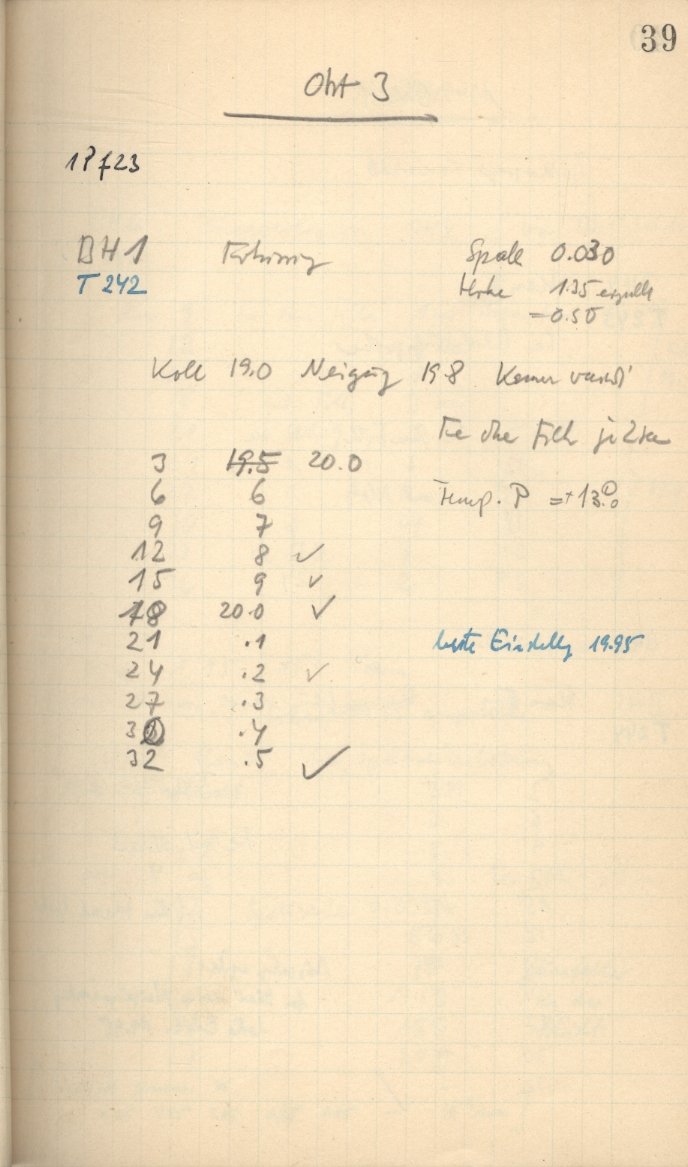 39
Okt 3
1Pf23
BH1 Fokussierung Spalt 0.030
T 242 Höhe 135
=0.50
Koll 19.0 Neigung 19.8 Kamera variiert
Fe ohne Filter je 2
3 19.5 20.0
6 6 Temp. P = +13.0
9 7
12 8 ✓
15 9 ✓
18 20.0 ✓
21 .1 beste Einstellg 19.95
24 .2 ✓
27 .3
30 .4
32 .5 ✓